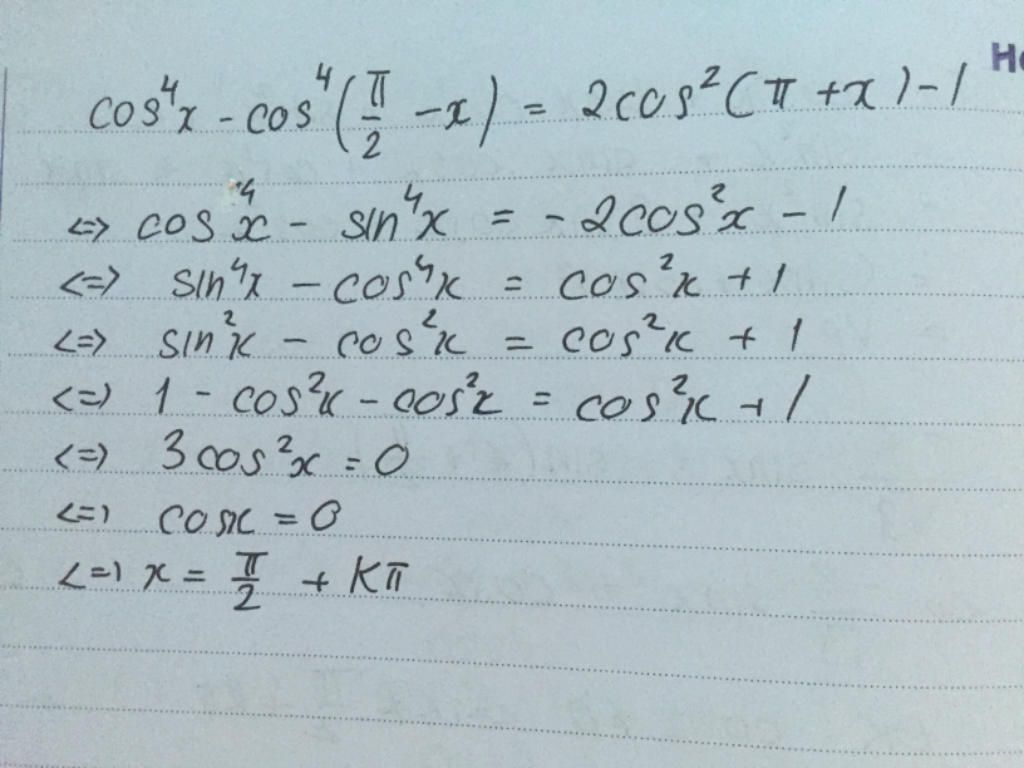 He
cos⁴x - cos⁴(π/2 - x) = 2cos²(π + x) - 1
<=> cos⁴x - sin⁴x = -2cos²x - 1
<=> sin⁴x - cos⁴x = cos²x + 1
<=> sin²x - cos²x = cos²x + 1
<=> 1 - cos²x - cos²x = cos²x + 1
<=> 3cos²x = 0
<=> cosx = 0
<=> x = π/2 + Kπ